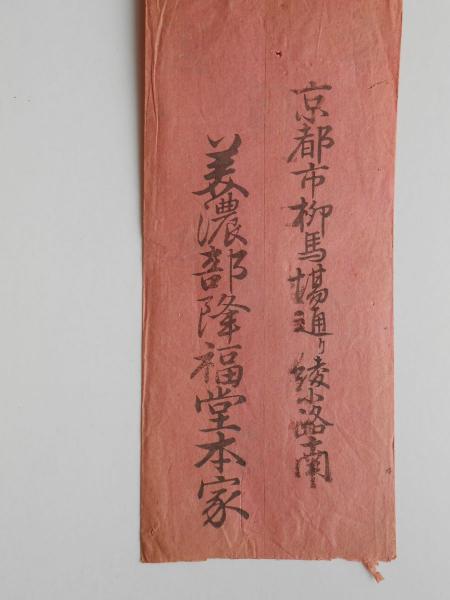 京都市柳馬場通り綾小路南
美濃部降福堂本家